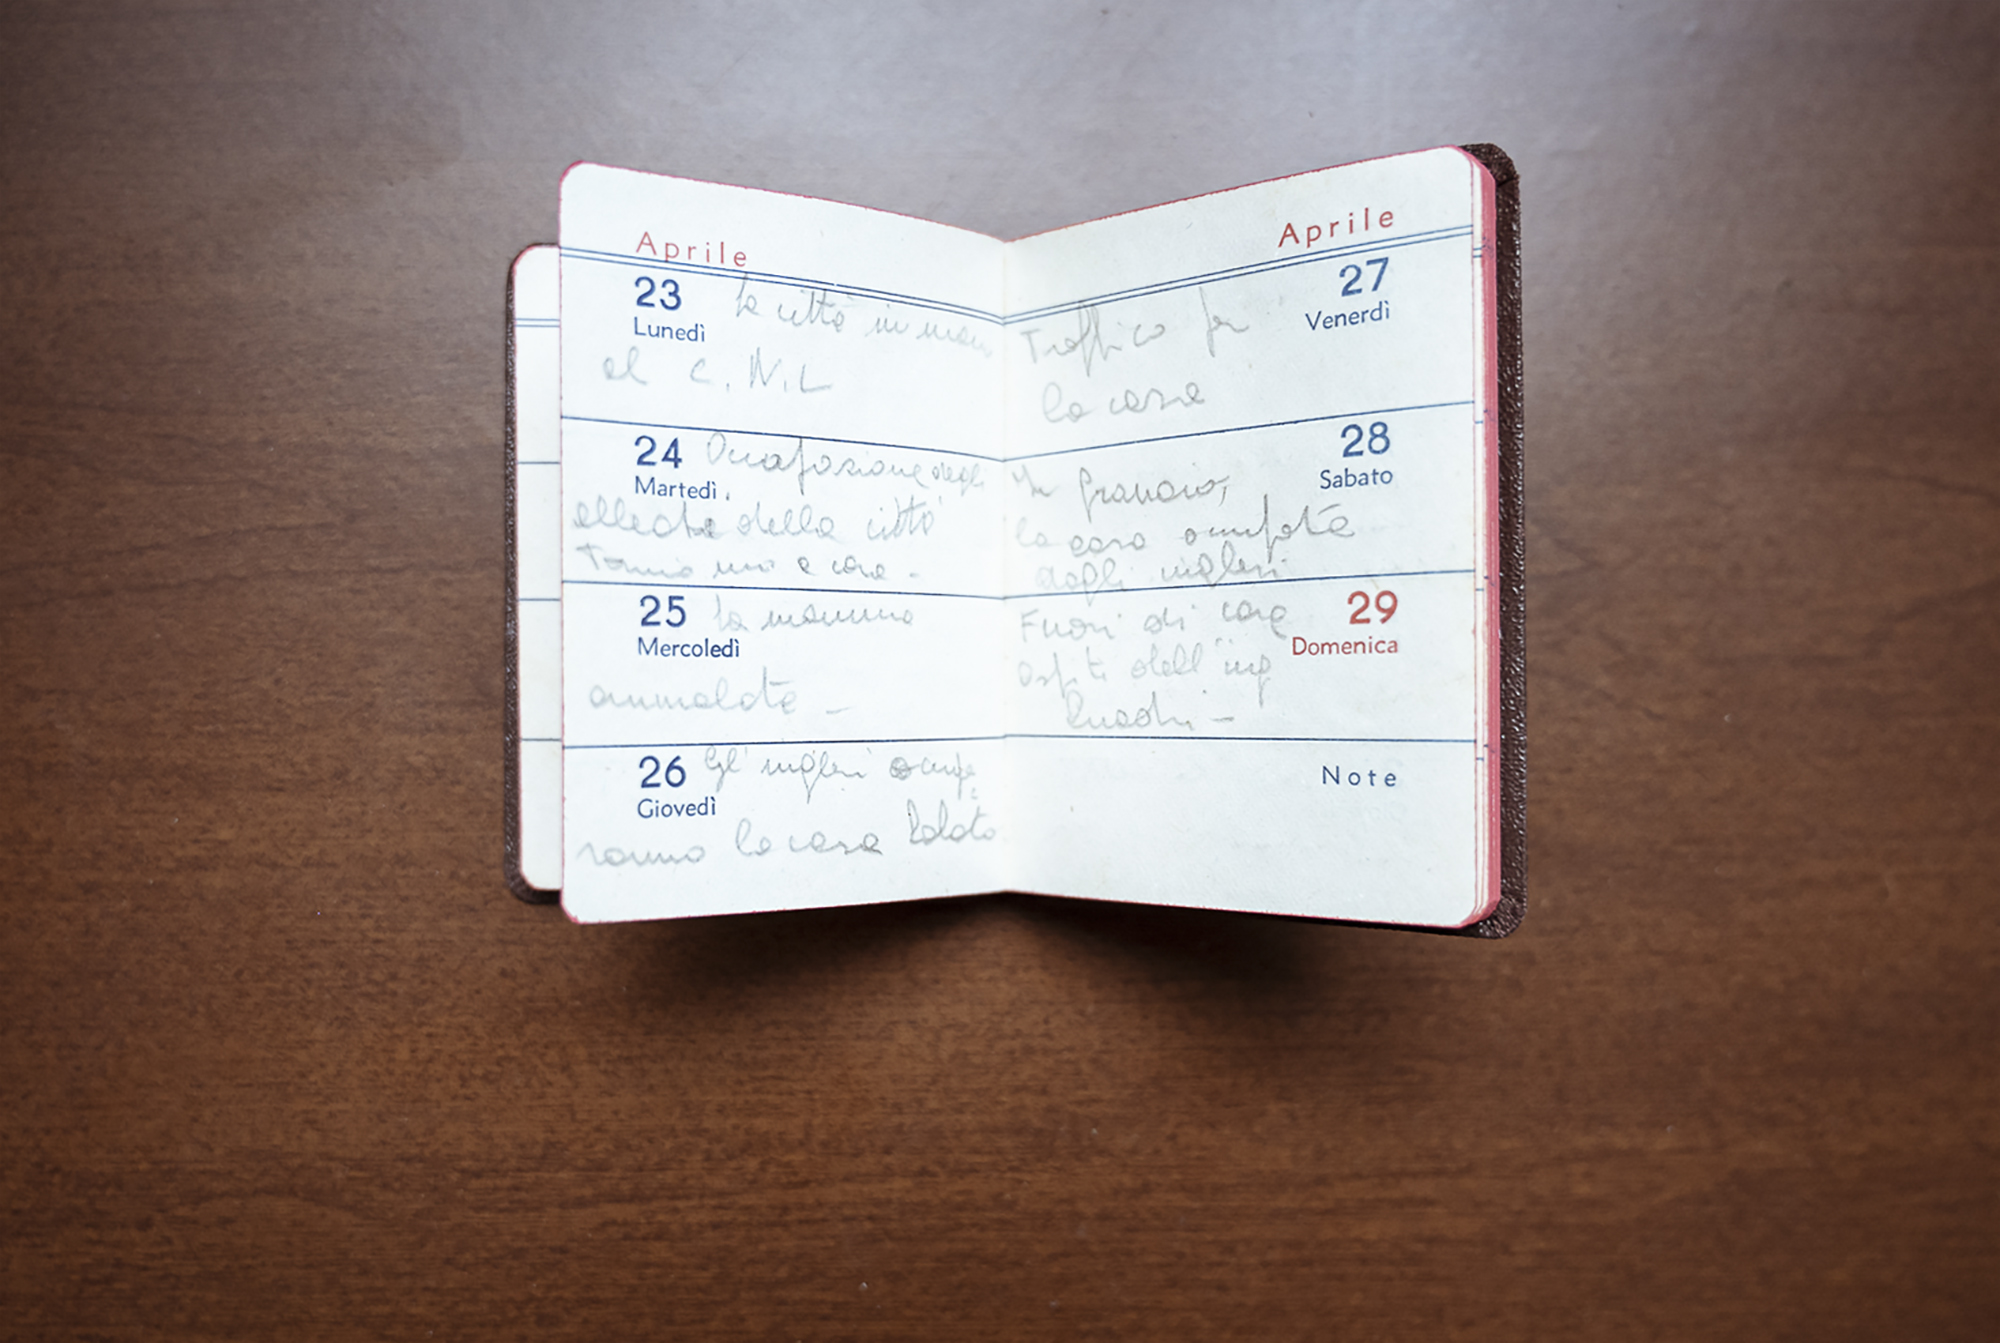 Aprile
23 la città in man
Lunedì
al C.N.L
24 Occupazione degli
Martedì
alleati della città
Torniamo a casa -
25 la mamma
Mercoledì
ammalata -
26 Gl' inglesi occupe
Giovedì
ranno la casa
Aprile
27
Traffico per
Venerdì
la casa
28
In granaio,
Sabato
la casa occupata
dagli inglesi
29
Fuori di casa
Domenica
ospiti dell'ing
Note